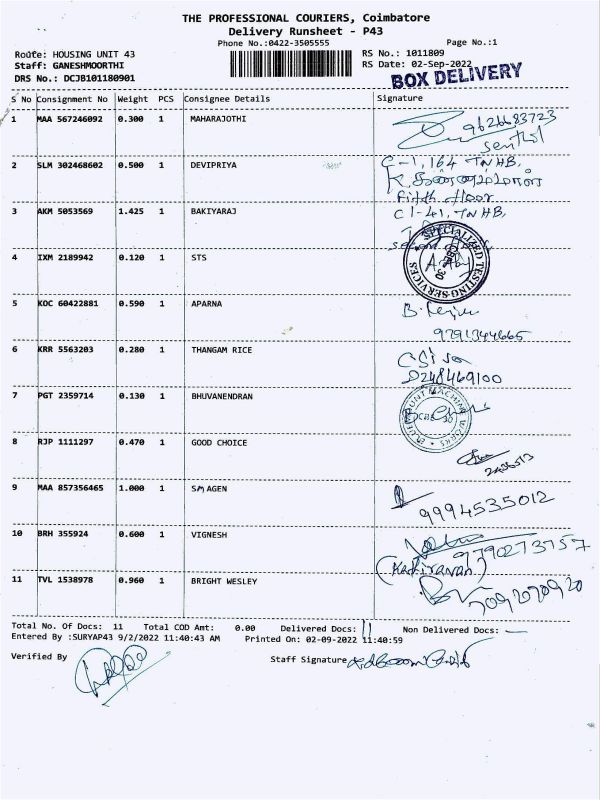 THE PROFESSIONAL COURIERS, Coimbatore
Delivery Runsheet - P43
Phone No.:0422-3505555
Page No.:1
Route: HOUSING UNIT 43
RS No.: 1011809
Staff: GANESHMOORTHI
RS Date: 02-Sep-2022
DRS No.: DCJB101180901
BOX DELIVERY
S No Consignment No Weight PCS Consignee Details Signature
1 MAA 567246092 0.300 1 MAHARAJOTHI
9626683723
Senthil
2 SLM 302468602 0.500 1 DEVIPRIYA C-1, 164 TNHB,
Fifth floor
3 AKM 5053569 1.425 1 BAKIYARAJ C1-41, TNHB,
SPECIALIZED TESTING SERVICES
4 IXM 2189942 0.120 1 STS
5 KOC 60422881 0.590 1 APARNA
9791344665
6 KRR 5563203 0.280 1 THANGAM RICE
0248469100
7 PGT 2359714 0.130 1 BHUVANENDRAN
8 RJP 1111297 0.470 1 GOOD CHOICE
9 MAA 857356465 1.000 1 SMAGEN
9994535012
10 BRH 355924 0.600 1 VIGNESH
9790273757
(Kadiravan)
11 TVL 1538978 0.960 1 BRIGHT WESLEY
7092070920
Total No. Of Docs: 11 Total COD Amt: 0.00 Delivered Docs: 11 Non Delivered Docs: —
Entered By :SURYAP43 9/2/2022 11:40:43 AM Printed On: 02-09-2022 11:40:59
Verified By
Staff Signature